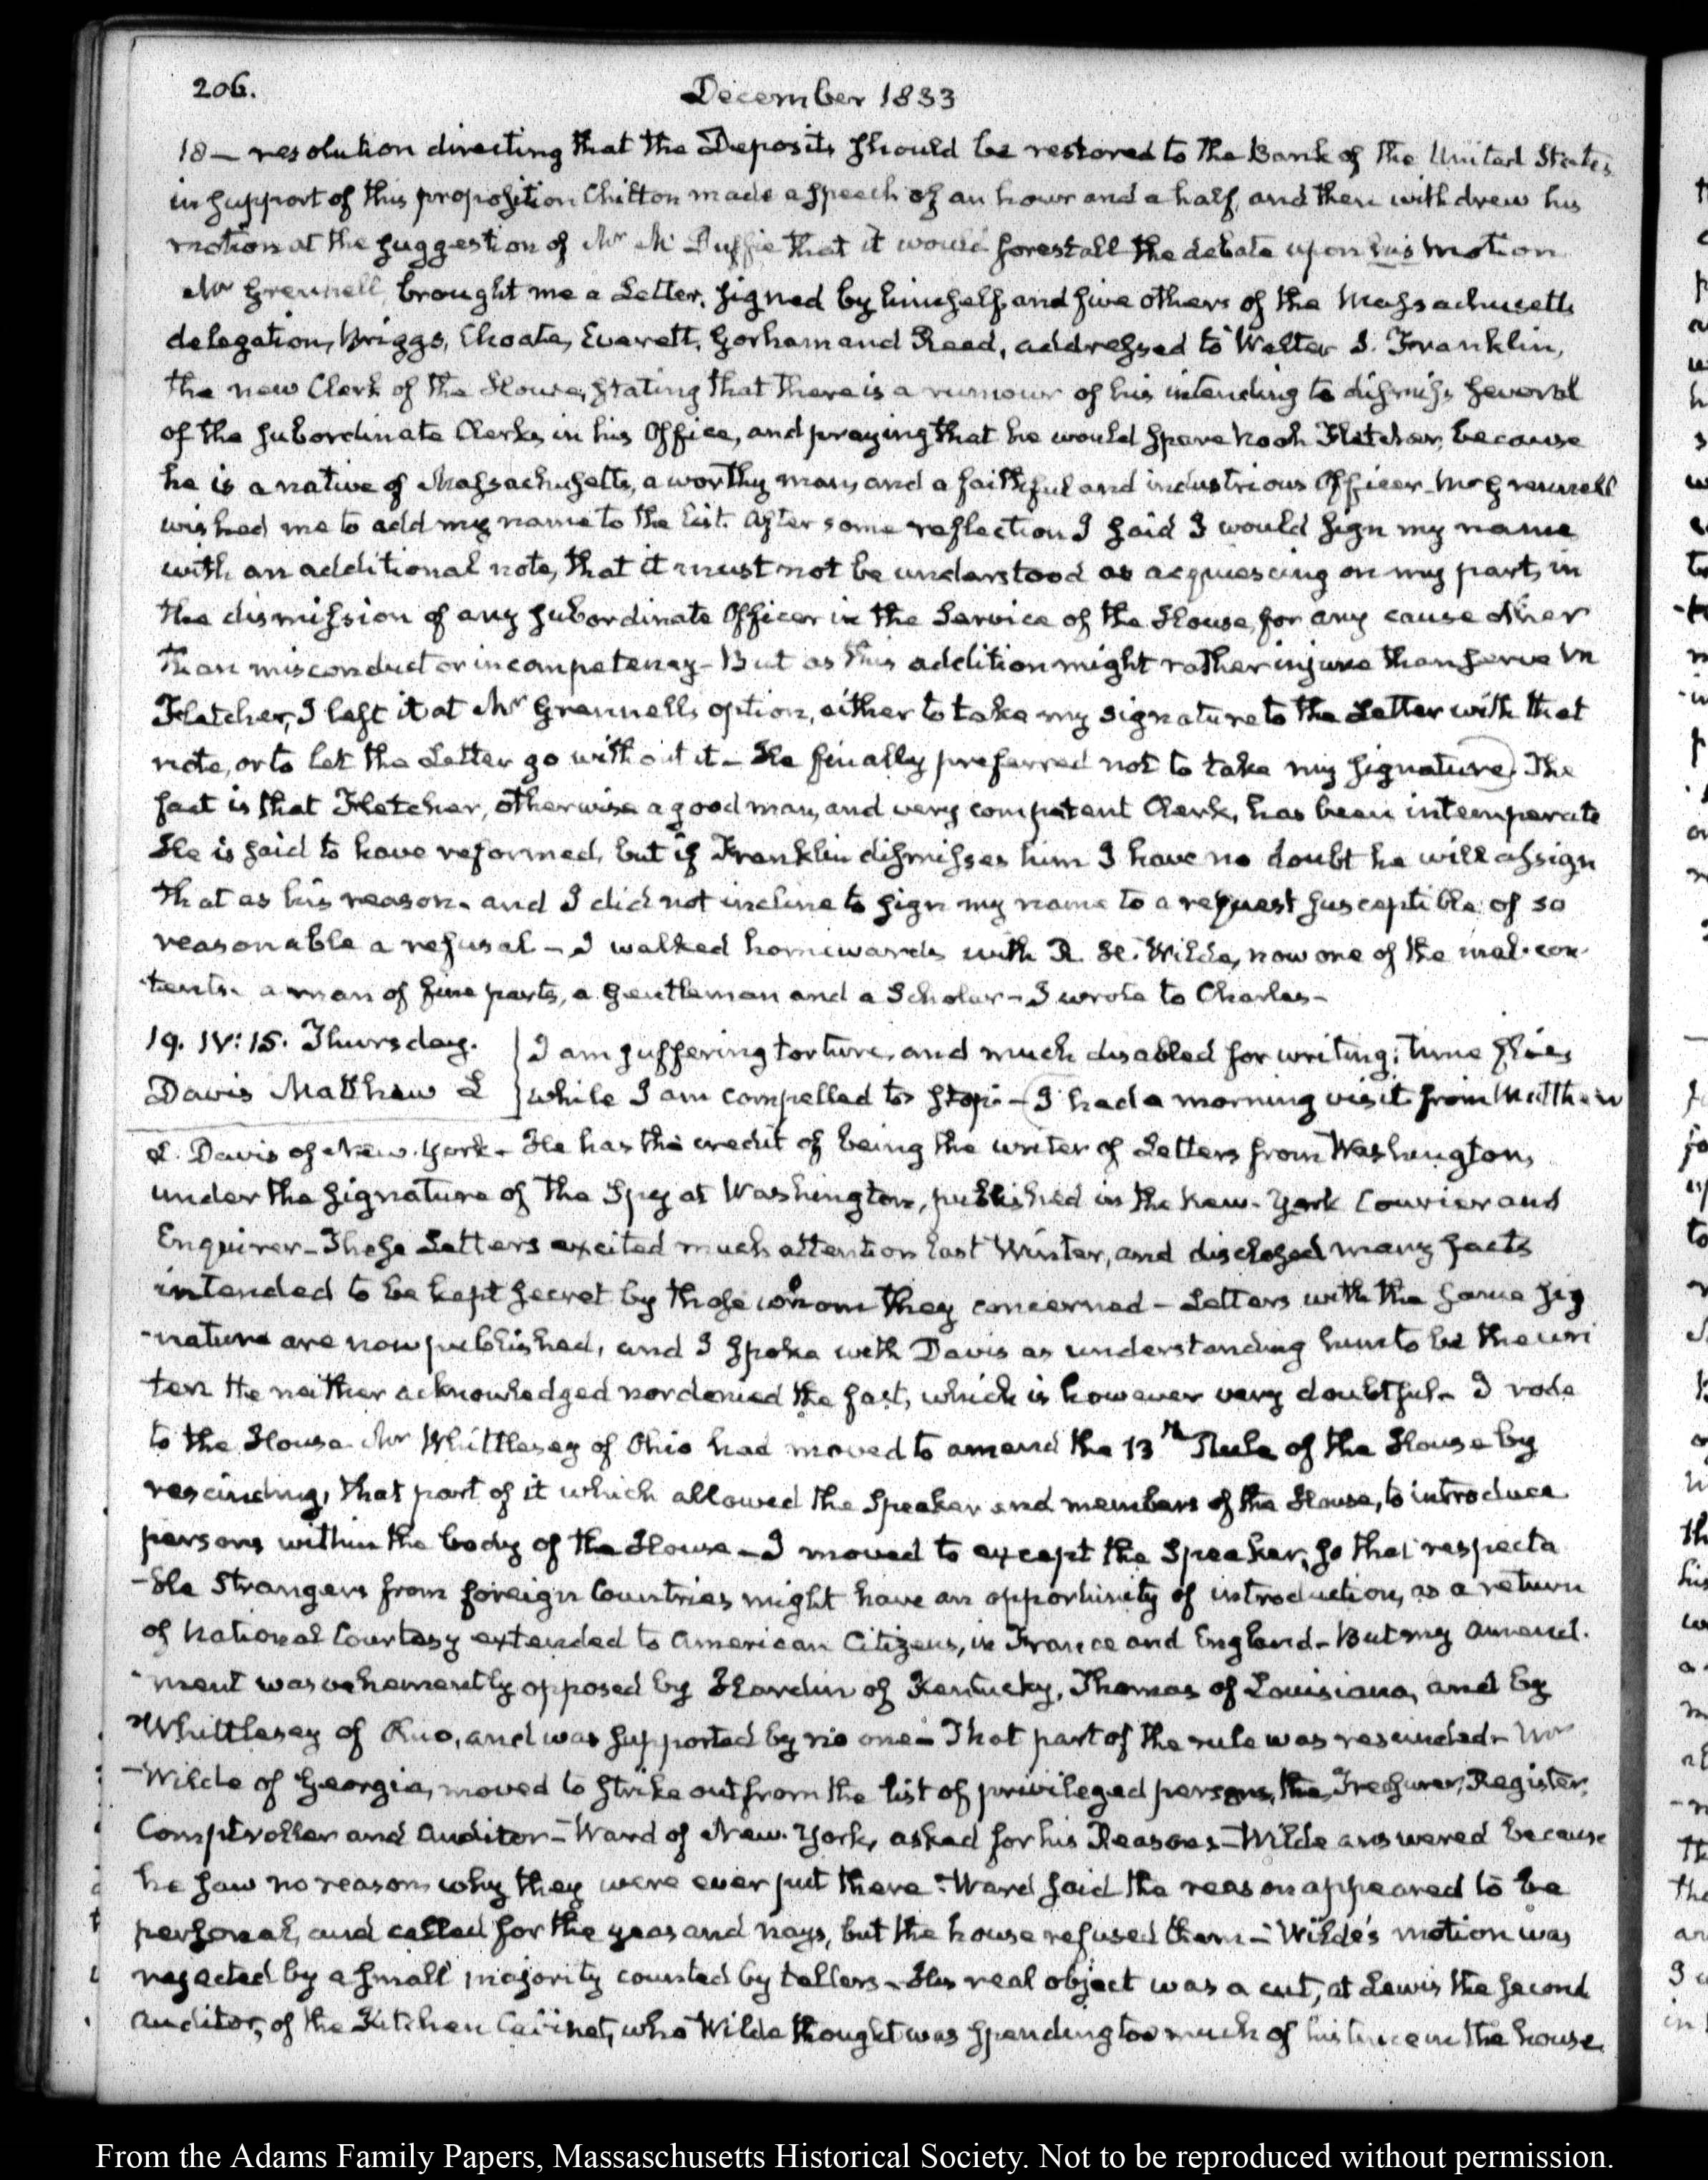 206.
December 1833
18 — resolution directing that the Deposits should be restored to the Bank of the United States
in support of this proposition Chilton made a speech of an hour and a half, and then withdrew his
motion at the suggestion of Mr. McDuffie that it would forestall the debate upon his motion
Mr Grennell brought me a Letter, signed by himself, and five others of the Massachusetts
delegation, Briggs, Choate, Everett, Gorham and Reed, addressed to Walter S. Franklin,
the new Clerk of the House, stating that there is a rumour of his intending to dismiss several
of the subordinate Clerks in his Office, and praying that he would spare Noah Fletcher, because
he is a native of Massachusetts, a worthy man, and a faithful and industrious Officer — Mr Grennell
wished me to add my name to the list. After some reflection I said I would sign my name
with an additional note, that it must not be understood as acquiescing on my part, in
the dismission of any subordinate Officer in the Service of the House, for any cause other
than misconduct or incompetency — But as this addition might rather injure than serve Mr
Fletcher, I left it at Mr Grennell's option, either to take my signature to the Letter with that
note, or to let the Letter go without it — He finally preferred not to take my signature. The
fact is that Fletcher, otherwise a good man, and very competent Clerk, has been intemperate
He is said to have reformed, but if Franklin dismisses him I have no doubt he will assign
that as his reason. and I did not incline to sign my name to a request susceptible of so
reasonable a refusal — I walked homewards with R. H. Wilde, now one of the mal-con-
-tents. a man of fine parts, a Gentleman and a Scholar — I wrote to Charles —
19. IV:15. Thursday. I am suffering torture, and much disabled for writing; time flies
Davis Matthew L while I am compelled to stop — I had a morning visit from Matthew
L. Davis of New-York — He has the credit of being the writer of Letters from Washington,
under the signature of the Spy at Washington, published in the New-York Courier and
Enquirer — These Letters excited much attention last Winter, and disclosed many facts
intended to be kept secret by those whom they concerned — Letters with the same sig
-nature are now published, and I spoke with Davis as understanding him to be the wri
ter. He neither acknowledged nor denied the fact, which is however very doubtful — I rode
to the House. Mr Whittlesey of Ohio had moved to amend the 13th Rule of the House by
rescinding, that part of it which allowed the Speaker and members of the House, to introduce
persons within the body of the House — I moved to except the Speaker, so that respecta
-ble Strangers from foreign Countries might have an opportunity of introduction, as a return
of National Courtesy extended to American Citizens, in France and England — But my amend-
-ment was vehemently opposed by Hardin of Kentucky, Thomas of Louisiana, and by
Whittlesey of Ohio, and was supported by no one — That part of the rule was rescinded — Mr
Wilde of Georgia, moved to strike out from the list of privileged persons, the Treasurer, Register,
Comptroller and Auditor — Ward of New-York, asked for his Reasons — Wilde answered because
he saw no reason why they were ever put there. Ward said the reason appeared to be
personal, and called for the yeas and nays, but the house refused them — Wilde's motion was
rejected by a small majority counted by tellers — His real object was a cut, at Lewis the second
Auditor, of the Kitchen Cabinet, who Wilde thought was spending too much of his time in the house
From the Adams Family Papers, Massachusetts Historical Society. Not to be reproduced without permission.